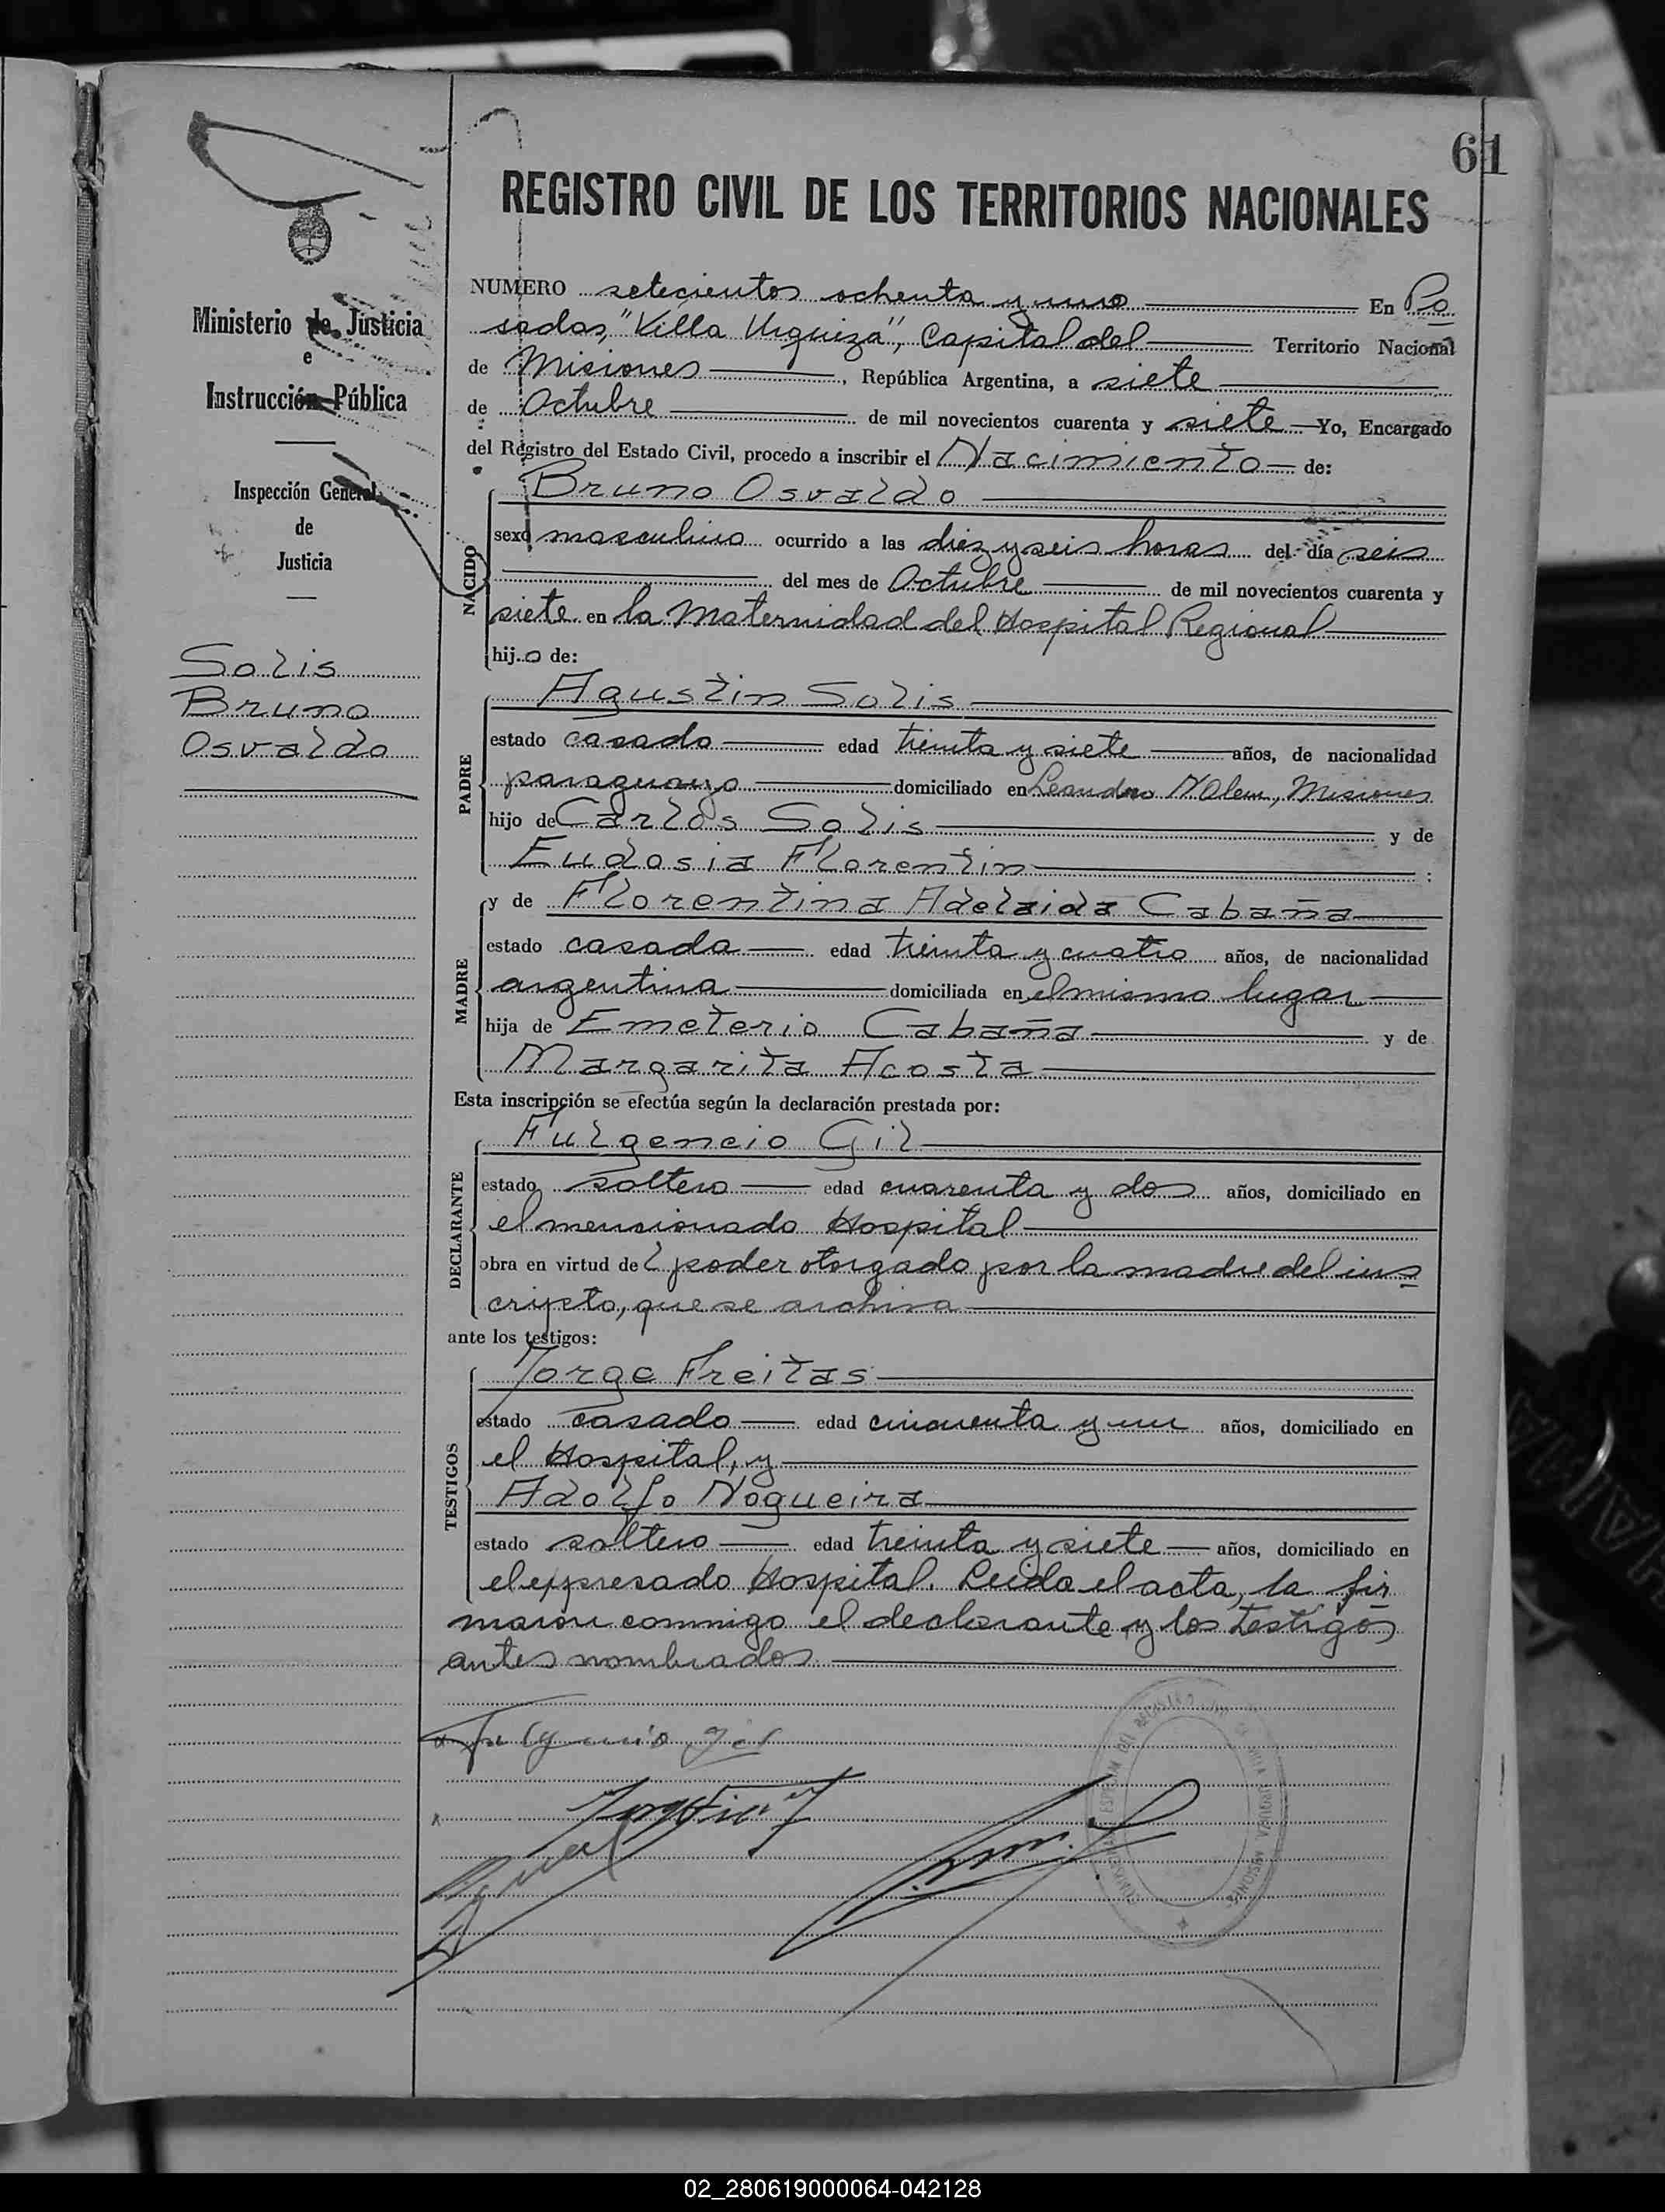 61
REGISTRO CIVIL DE LOS TERRITORIOS NACIONALES
Ministerio de Justicia
e
Instrucción Pública
Inspección General
de
Justicia
Solis
Bruno
Osvaldo
NUMERO setecientos ochenta y uno En Po
sadas, "Villa Urquiza", Capital del Territorio Nacional
de Misiones, República Argentina, a siete
de Octubre de mil novecientos cuarenta y siete Yo, Encargado
del Registro del Estado Civil, procedo a inscribir el Nacimiento de:
NACIDO
Bruno Osvaldo
sexo masculino ocurrido a las diez y seis horas del día seis
del mes de Octubre de mil novecientos cuarenta y
siete en la Maternidad del Hospital Regional
hijo de:
PADRE
Agustin Solis
estado casado edad treinta y siete años, de nacionalidad
paraguayo domiciliado en Leandro N Alem, Misiones
hijo de Carlos Solis y de
Eudosia Florentin :
MADRE
y de Florentina Adelaida Cabaña
estado casada edad treinta y cuatro años, de nacionalidad
argentina domiciliada en el mismo lugar
hija de Emeterio Cabaña y de
Margarita Acosta
Esta inscripción se efectúa según la declaración prestada por:
DECLARANTE
Fulgencio Gil
estado soltero edad cuarenta y dos años, domiciliado en
el mencionado Hospital
obra en virtud del poder otorgado por la madre del ins
cripto, que se archiva
ante los testigos:
TESTIGOS
Jorge Freitas
estado casado edad cincuenta y un años, domiciliado en
el Hospital, y
Adolfo Nogueira
estado soltero edad treinta y siete años, domiciliado en
el expresado Hospital. Leida el acta, la fir
maron conmigo el declarante y los testigos
antes nombrados
Fulgencio Gil
02_280619000064-042128